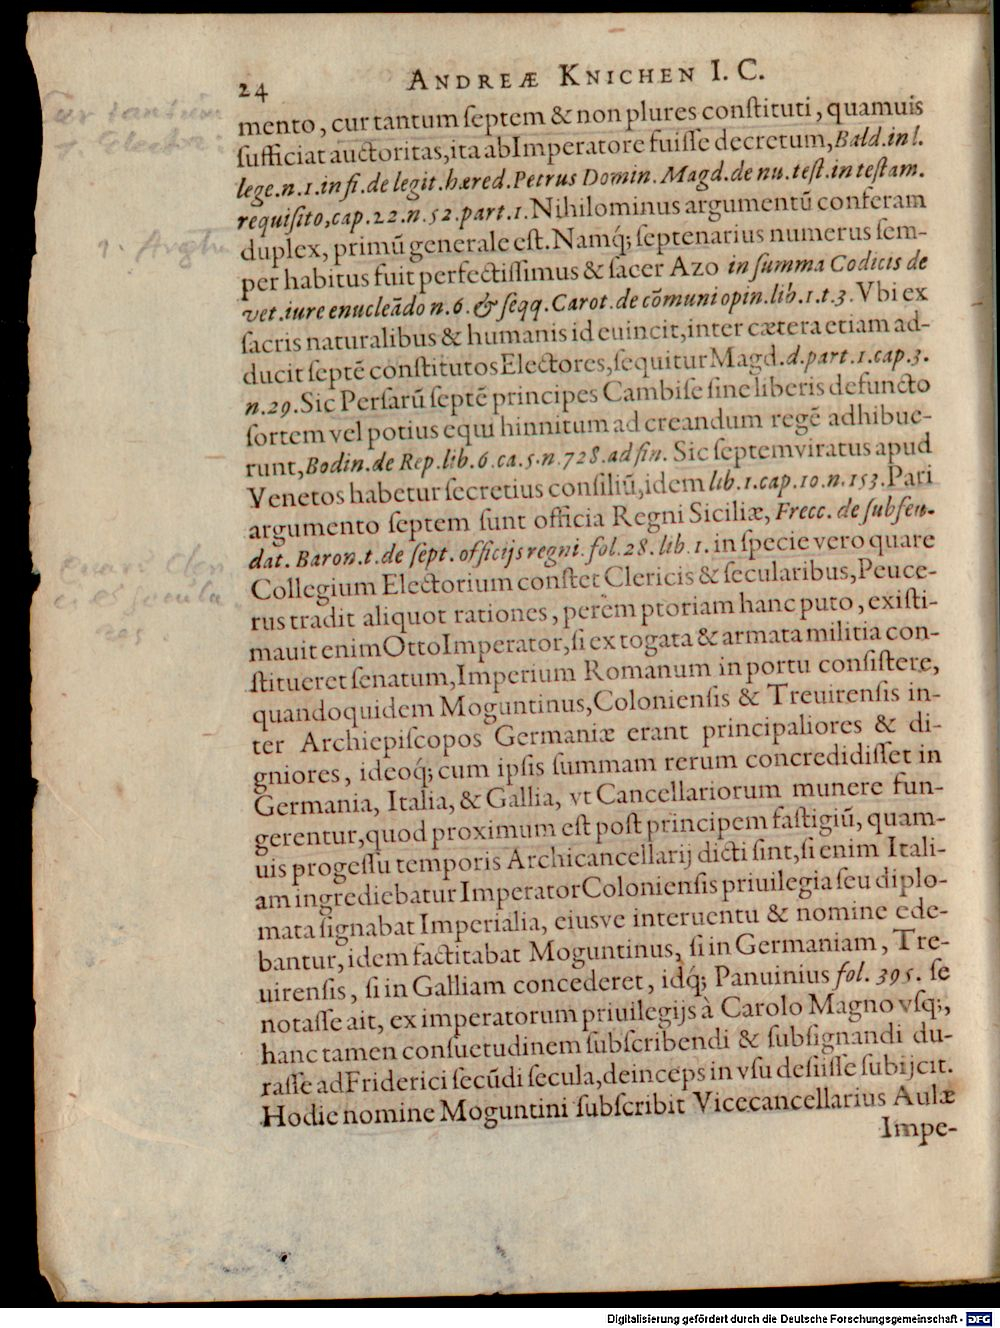 24 ANDREÆ KNICHEN I. C.
mento, cur tantum ſeptem & non plures conſtituti, quamuis
ſufficiat auctoritas, ita ab Imperatore fuiſſe decretum, Bald. in l.
lege. n. 1. in fi. de legit. hæred. Petrus Domin. Magd. de nu. teſt. in teſtam.
requiſito, cap. 22. n. 52. part. 1. Nihilominus argumentū conferam
duplex, primū generale eſt. Namq́; ſeptenarius numerus ſem-
per habitus fuit perfectiſſimus & ſacer Azo in ſumma Codicis de
vet. iure enucleādo n. 6. & ſeqq. Carot. de cōmuni opin. lib. 1. t. 3. Vbi ex
ſacris naturalibus & humanis id euincit, inter cætera etiam ad-
ducit ſeptē conſtitutos Electores, ſequitur Magd. d. part. 1. cap. 3.
n. 29. Sic Perſarū ſeptē principes Cambiſe ſine liberis defuncto
ſortem vel potius equi hinnitum ad creandum regē adhibue-
runt, Bodin. de Rep. lib. 6. ca. 5. n. 728. ad fin. Sic ſeptemviratus apud
Venetos habetur ſecretius conſiliū, idem lib. 1. cap. 10. n. 153. Pari
argumento ſeptem ſunt officia Regni Siciliæ, Frecc. de ſubfeu-
dat. Baron. t. de ſept. officijs regni. fol. 28. lib. 1. in ſpecie vero quare
Collegium Electorium conſtet Clericis & ſecularibus, Peuce-
rus tradit aliquot rationes, perem ptoriam hanc puto, exiſti-
mauit enim Otto Imperator, ſi ex togata & armata militia con-
ſtitueret ſenatum, Imperium Romanum in portu conſiſtere,
quandoquidem Moguntinus, Colonienſis & Treuirenſis in-
ter Archiepiſcopos Germaniæ erant principaliores & di-
gniores, ideoq́; cum ipſis ſummam rerum concredidiſſet in
Germania, Italia, & Gallia, vt Cancellariorum munere fun-
gerentur, quod proximum eſt poſt principem faſtigiū, quam-
uis progeſſu temporis Archicancellarij dicti ſint, ſi enim Itali-
am ingrediebatur Imperator Colonienſis priuilegia ſeu diplo-
mata ſignabat Imperialia, eiusve interuentu & nomine ede-
bantur, idem factitabat Moguntinus, ſi in Germaniam, Tre-
uirenſis, ſi in Galliam concederet, idq́; Panuinius fol. 395. ſe
notaſſe ait, ex imperatorum priuilegijs à Carolo Magno vſq;,
hanc tamen conſuetudinem ſubſcribendi & ſubſignandi du-
raſſe ad Friderici ſecūdi ſecula, deinceps in vſu deſiiſſe ſubijcit.
Hodie nomine Moguntini ſubſcribit Vicecancellarius Aulæ
Impe-
Cur tantum
7. Elector:
1.
quare Cleri
ci & secula
res.
Digitalisierung gefördert durch die Deutsche Forschungsgemeinschaft - DFG